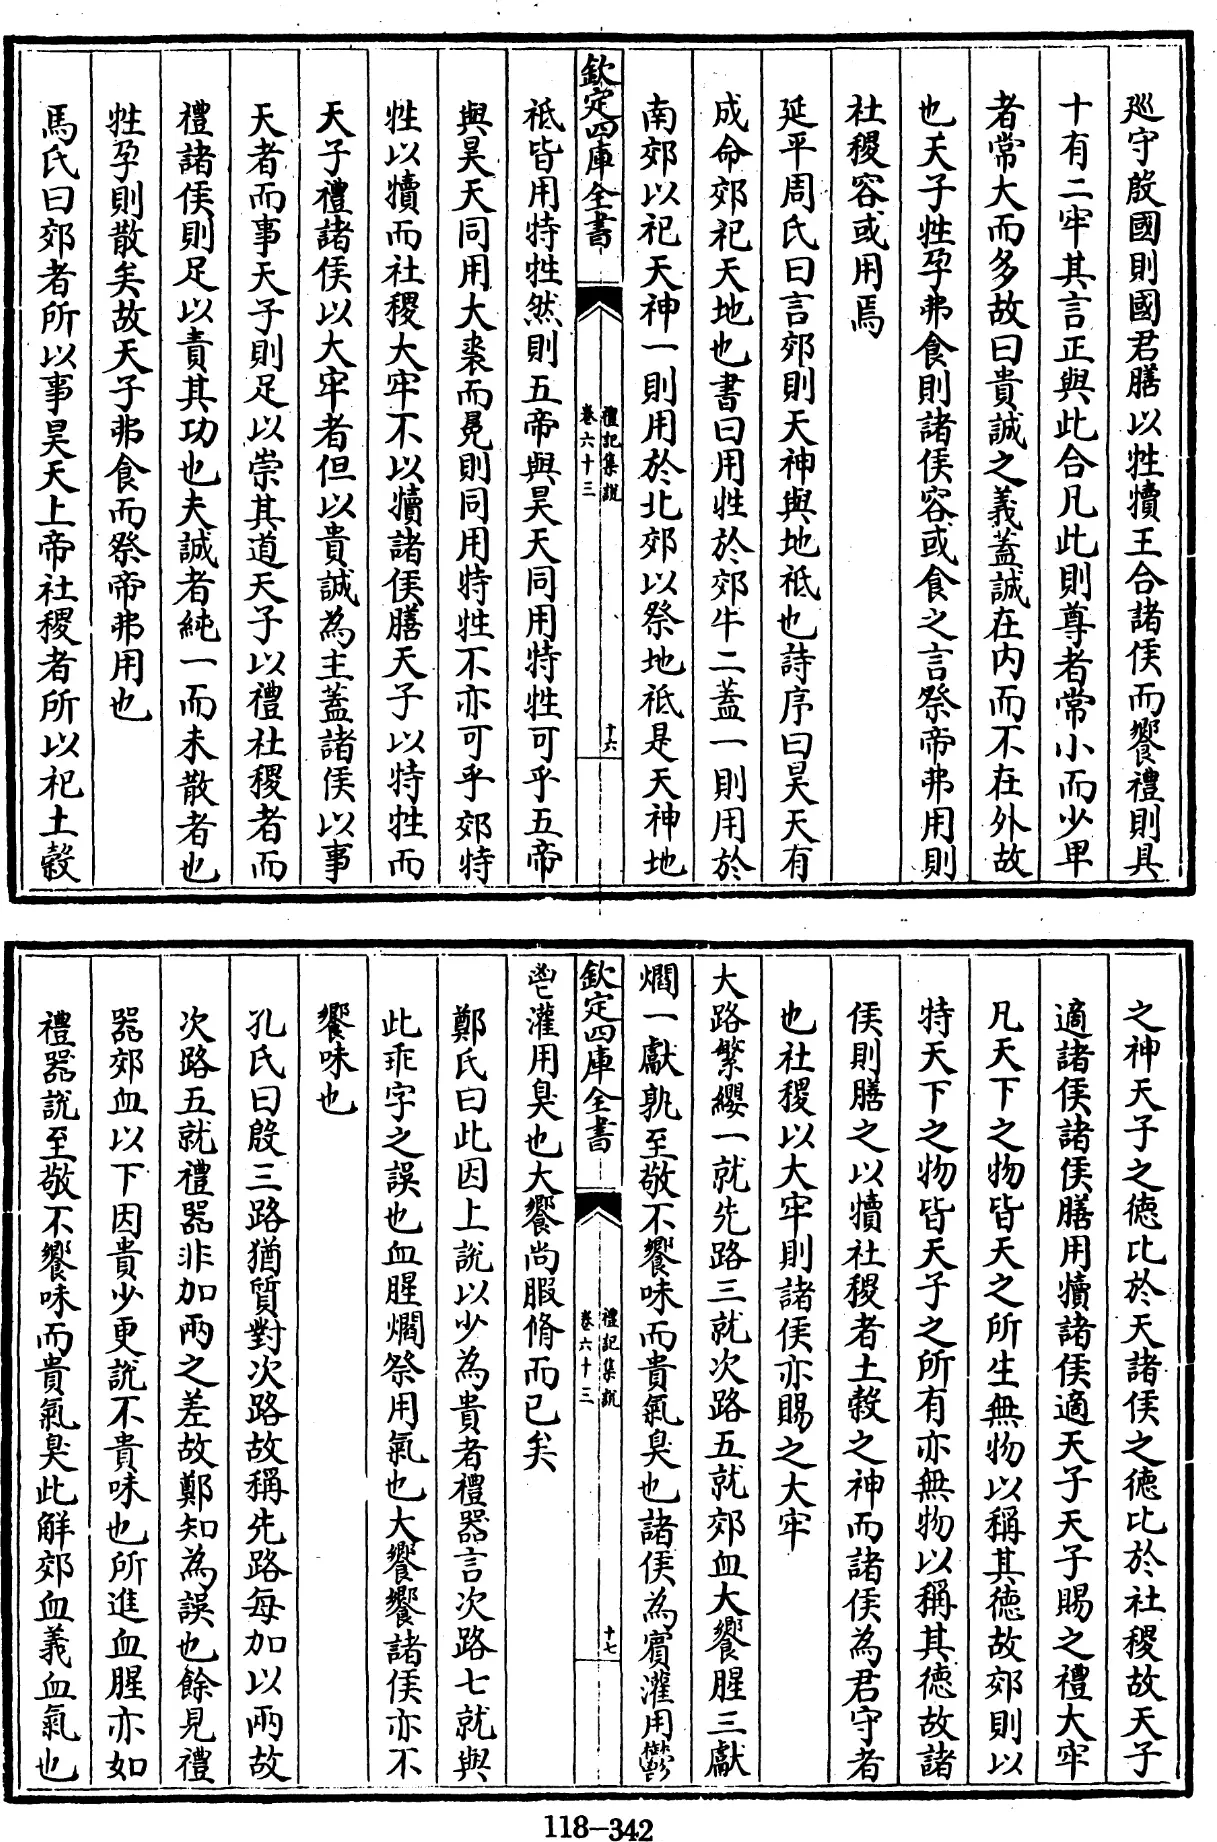 廵守殷國則國君膳以牲犢王合諸侯而饗禮則具
十有二牢其言正與此合凡此則尊者常小而少卑
者常大而多故曰貴誠之義蓋誠在内而不在外故
也天子牲孕弗食則諸侯容或食之言祭帝弗用則
社稷容或用焉
延平周氏曰言郊則天神與地祗也詩序曰昊天有
成命郊祀天地也書曰用牲於郊牛二蓋一則用於
南郊以祀天神一則用於北郊以祭地祗是天神地
欽定四庫全書
禮記集說
卷六十三
十六
祗皆用特牲然則五帝與昊天同用特牲可乎五帝
與昊天同用大裘而冕則同用特牲不亦可乎郊特
牲以犢而社稷大牢不以犢諸侯膳天子以特牲而
天子禮諸侯以大牢者但以貴誠為主蓋諸侯以事
天者而事天子則足以崇其道天子以禮社稷者而
禮諸侯則足以責其功也夫誠者純一而未散者也
牲孕則散矣故天子弗食而祭帝弗用也
馬氏曰郊者所以事昊天上帝社稷者所以祀土穀
之神天子之徳比於天諸侯之徳比於社稷故天子
適諸侯諸侯膳用犢諸侯適天子天子賜之禮大牢
凡天下之物皆天之所生無物以稱其徳故郊則以
特天下之物皆天子之所有亦無物以稱其徳故諸
侯則膳之以犢社稷者土穀之神而諸侯為君守者
也社稷以大牢則諸侯亦賜之大牢
大路繁纓一就先路三就次路五就郊血大饗腥三獻
爓一獻孰至敬不饗味而貴氣臭也諸侯為賓灌用鬱
欽定四庫全書
禮記集說
卷六十三
十七
鬯灌用臭也大饗尚腶脩而已矣
鄭氏曰此因上說以少為貴者禮器言次路七就與
此乖字之誤也血腥爓祭用氣也大饗饗諸侯亦不
饗味也
孔氏曰殷三路猶質對次路故稱先路每加以兩故
次路五就禮器非加兩之差故鄭知為誤也餘見禮
器郊血以下因貴少更說不貴味也所進血腥亦如
禮器說至敬不饗味而貴氣臭此解郊血義血氣也
118-342